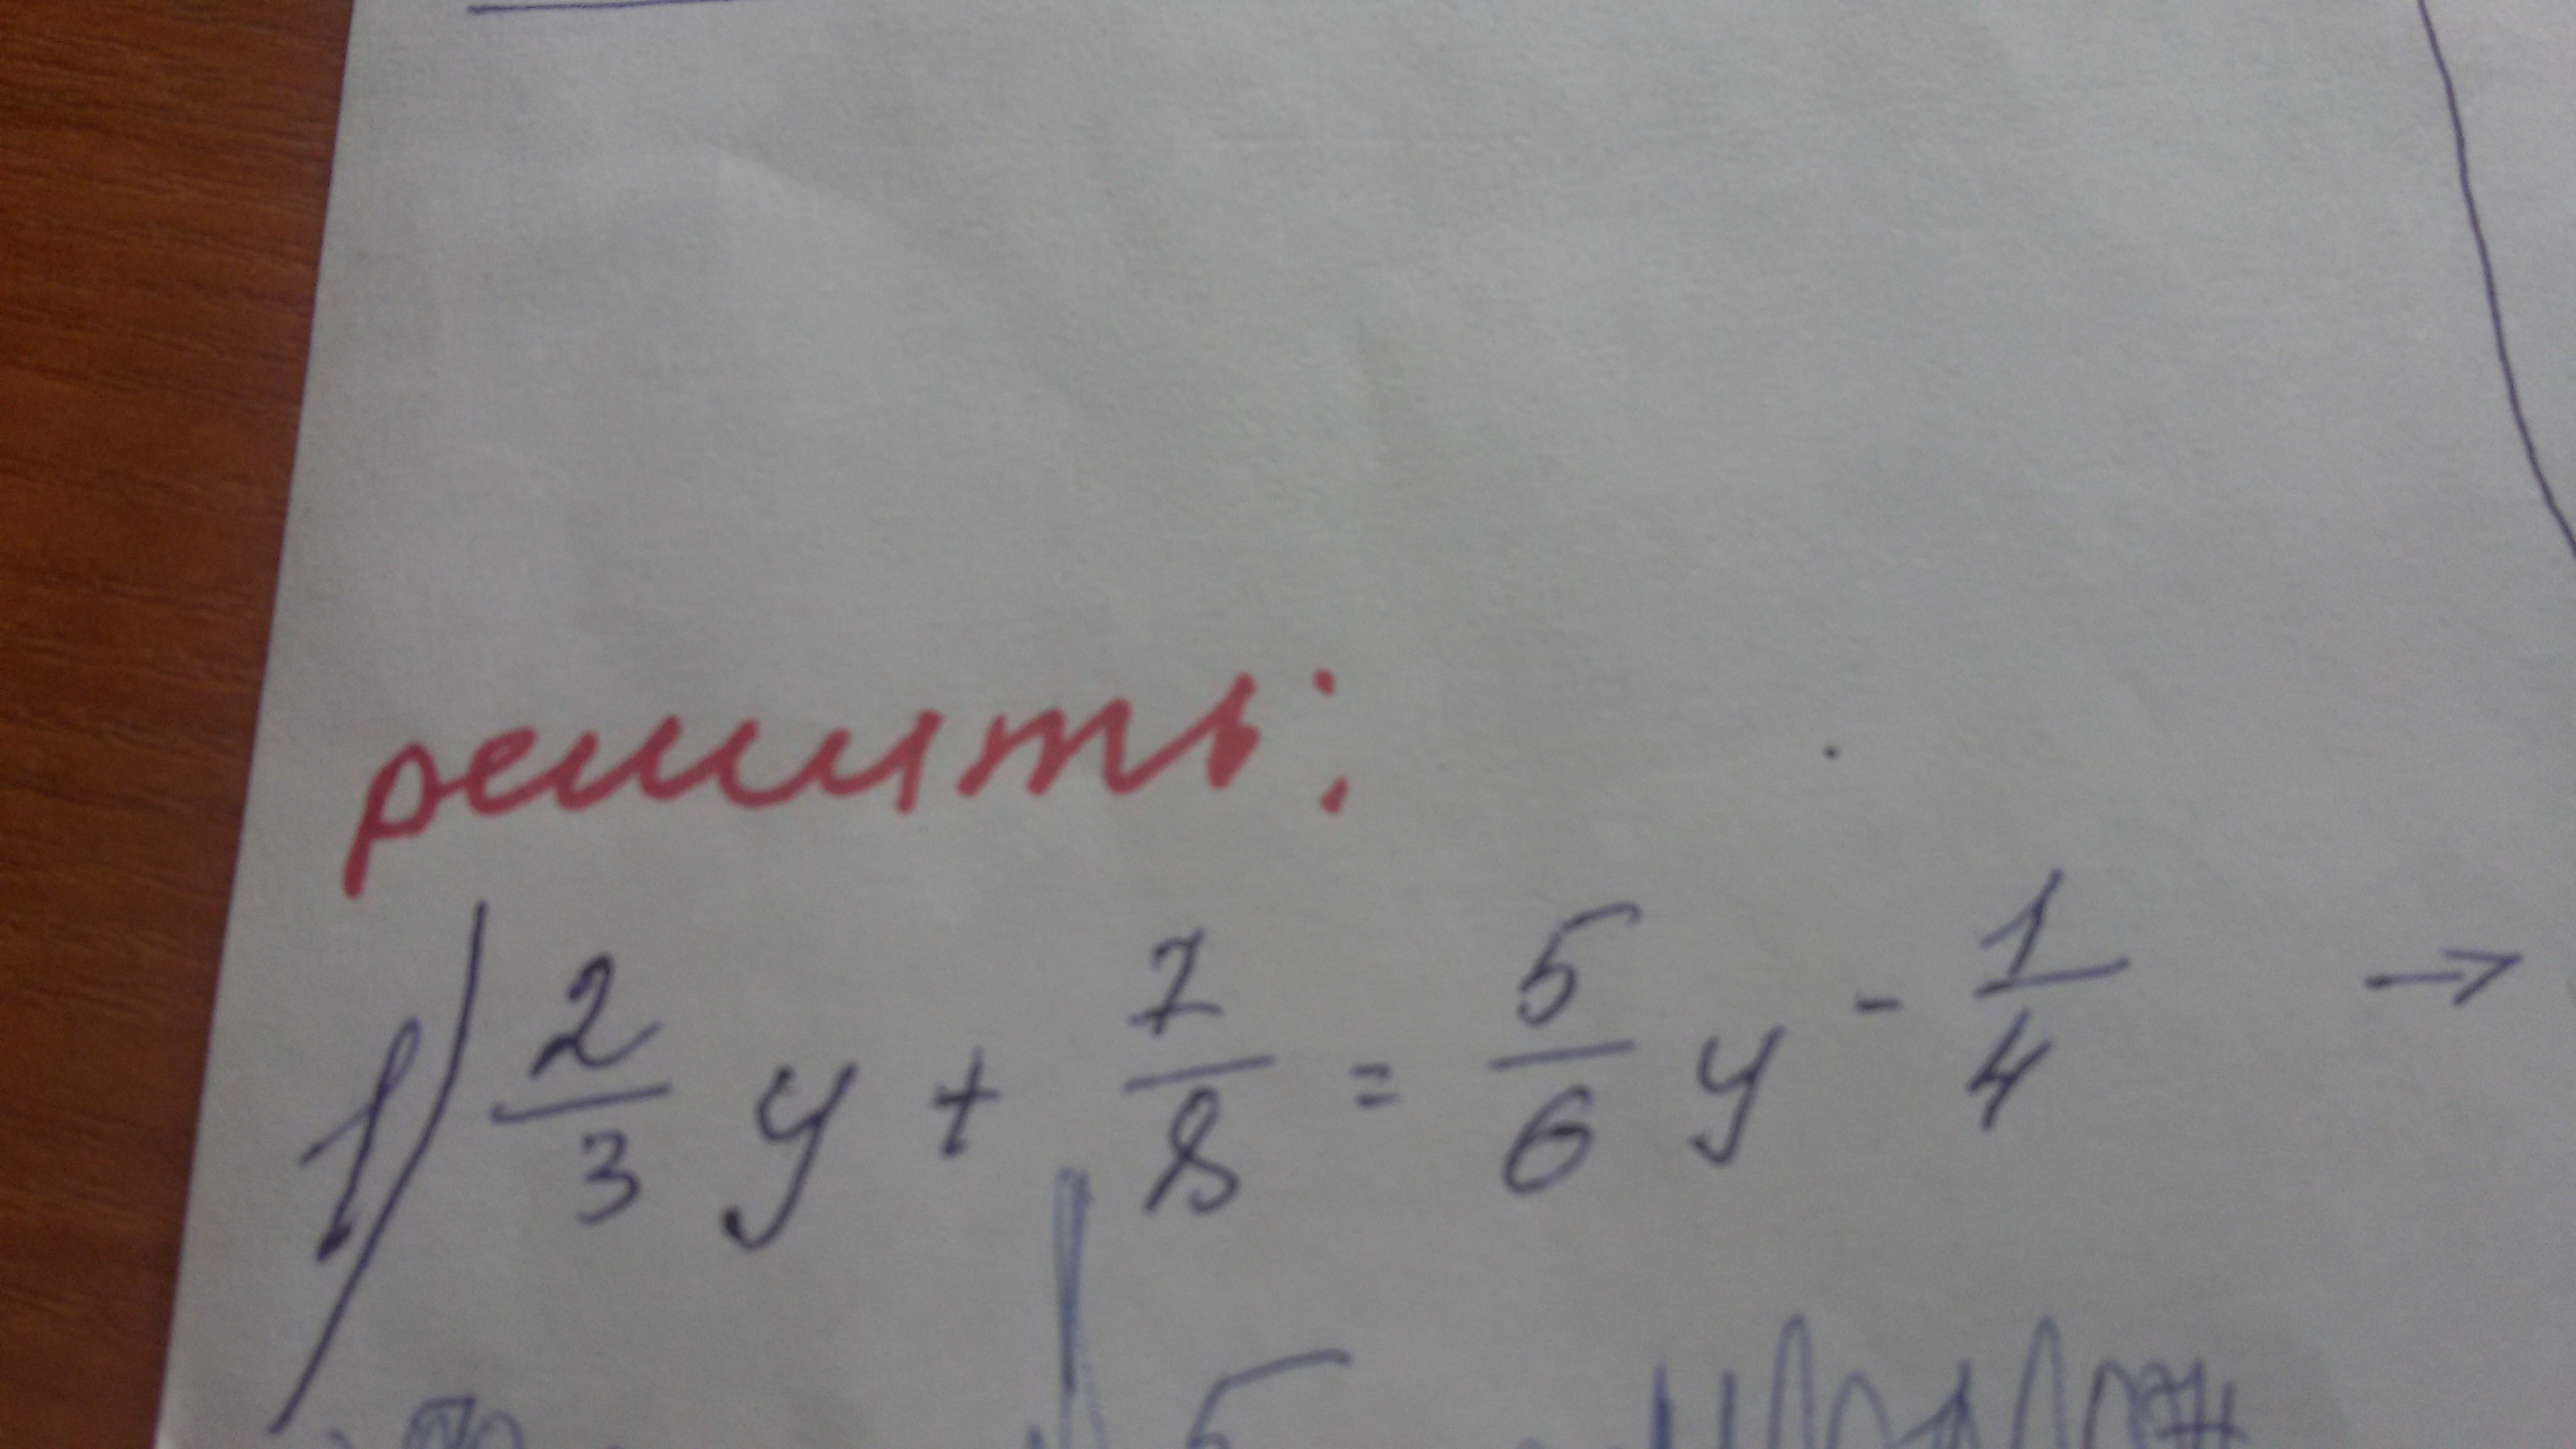 решить:
1) 2/3 y + 7/8 = 5/6 y - 1/4 →
5